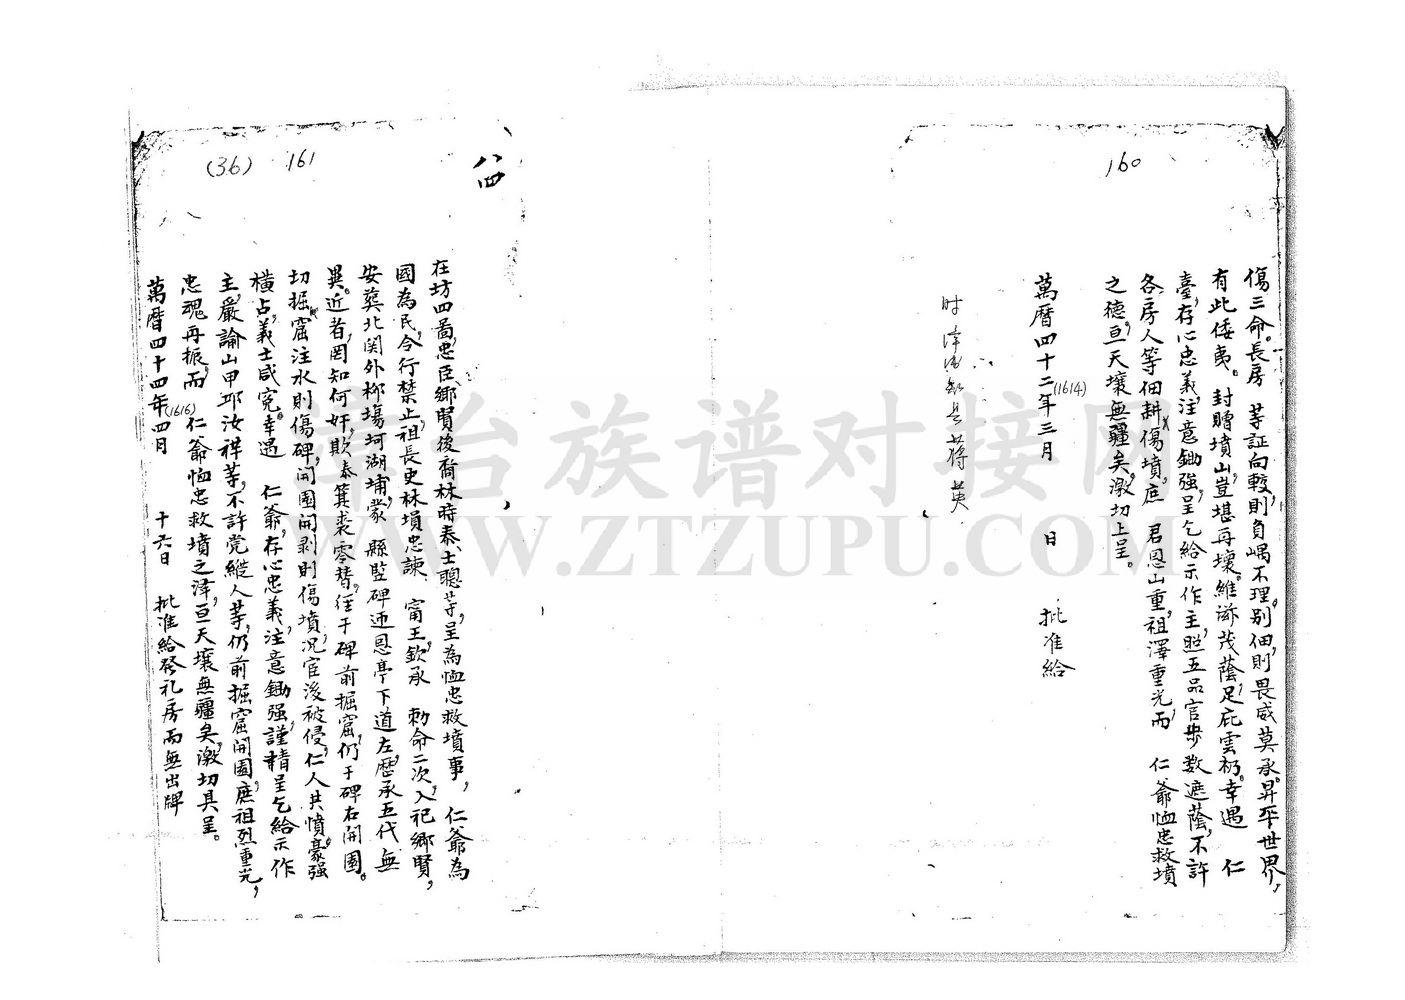 160
傷三命。長房 等証向較，則負嵎不理。別佃，則畏威莫承。昇平世界，
有此倭夷。封贈墳山，豈堪再壞。維茲茂蔭，足庇雲礽。幸遇 仁
臺，存心忠義，注意鋤強，呈乞給示作主，照五品官步數遮蔭，不許
各房人等佃耕傷墳。庶 君恩山重，祖澤重光，而 仁爺恤忠救墳
之德，亘天壤無疆矣，激切上呈。
萬曆四十二年三月 日 批准給
(1614)
时漳浦知县蔣 英
八四
161
(36)
在坊四啚，忠臣鄉賢後裔林時泰、士聰等，呈為恤忠救墳事，仁爺為
國為民，令行禁止，祖長史林塤忠諫 甯王，欽承 勅命二次，入祀鄉賢，
安葬北関外柳塲坷湖埔，蒙 縣監碑迊恩亭下道左，歷承五代無
異。近者，罔知何奸，欺泰箕裘零替，徃于碑前掘窟，仍于碑右開園。
切掘窟注水則傷碑，開園開剥則傷墳，况宦後被侵，仁人共憤，豪强
橫占，義士咸寃。幸遇 仁爺，存心忠義，注意鋤强，謹精呈乞給示作
主，嚴諭山甲邱汝祥等，不許党縱人等，仍前掘窟開園，庶祖烈重光，
忠魂再振，而 仁爺恤忠救墳之澤，亘天壤無疆矣，激切具呈。
萬曆四十四年四月 十六日 批准給發礼房而無出牌
(1616)
漳台族谱对接网
WWW.ZTZUPU.COM